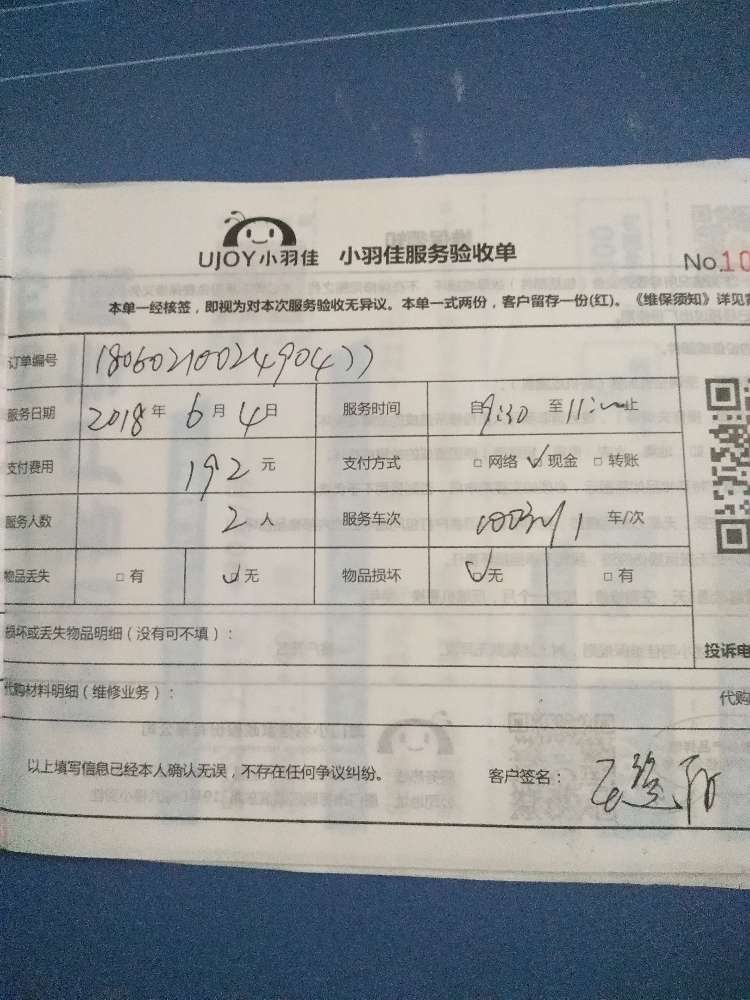 UJOY小羽佳 小羽佳服务验收单
No.10
本单一经核签，即视为对本次服务验收无异议。本单一式两份，客户留存一份(红)。《维保须知》详见背
订单编号 1806021002490477
服务日期 2018年6月4日 服务时间 自9:30至11:止
支付费用 192元 支付方式 □网络 ☑现金 □转账
服务人数 2人 服务车次 1车/次
物品丢失 □有 ☑无 物品损坏 ☑无 □有
损坏或丢失物品明细（没有可不填）：
投诉电
代购材料明细（维修业务）：
代购
以上填写信息已经本人确认无误，不存在任何争议纠纷。 客户签名：